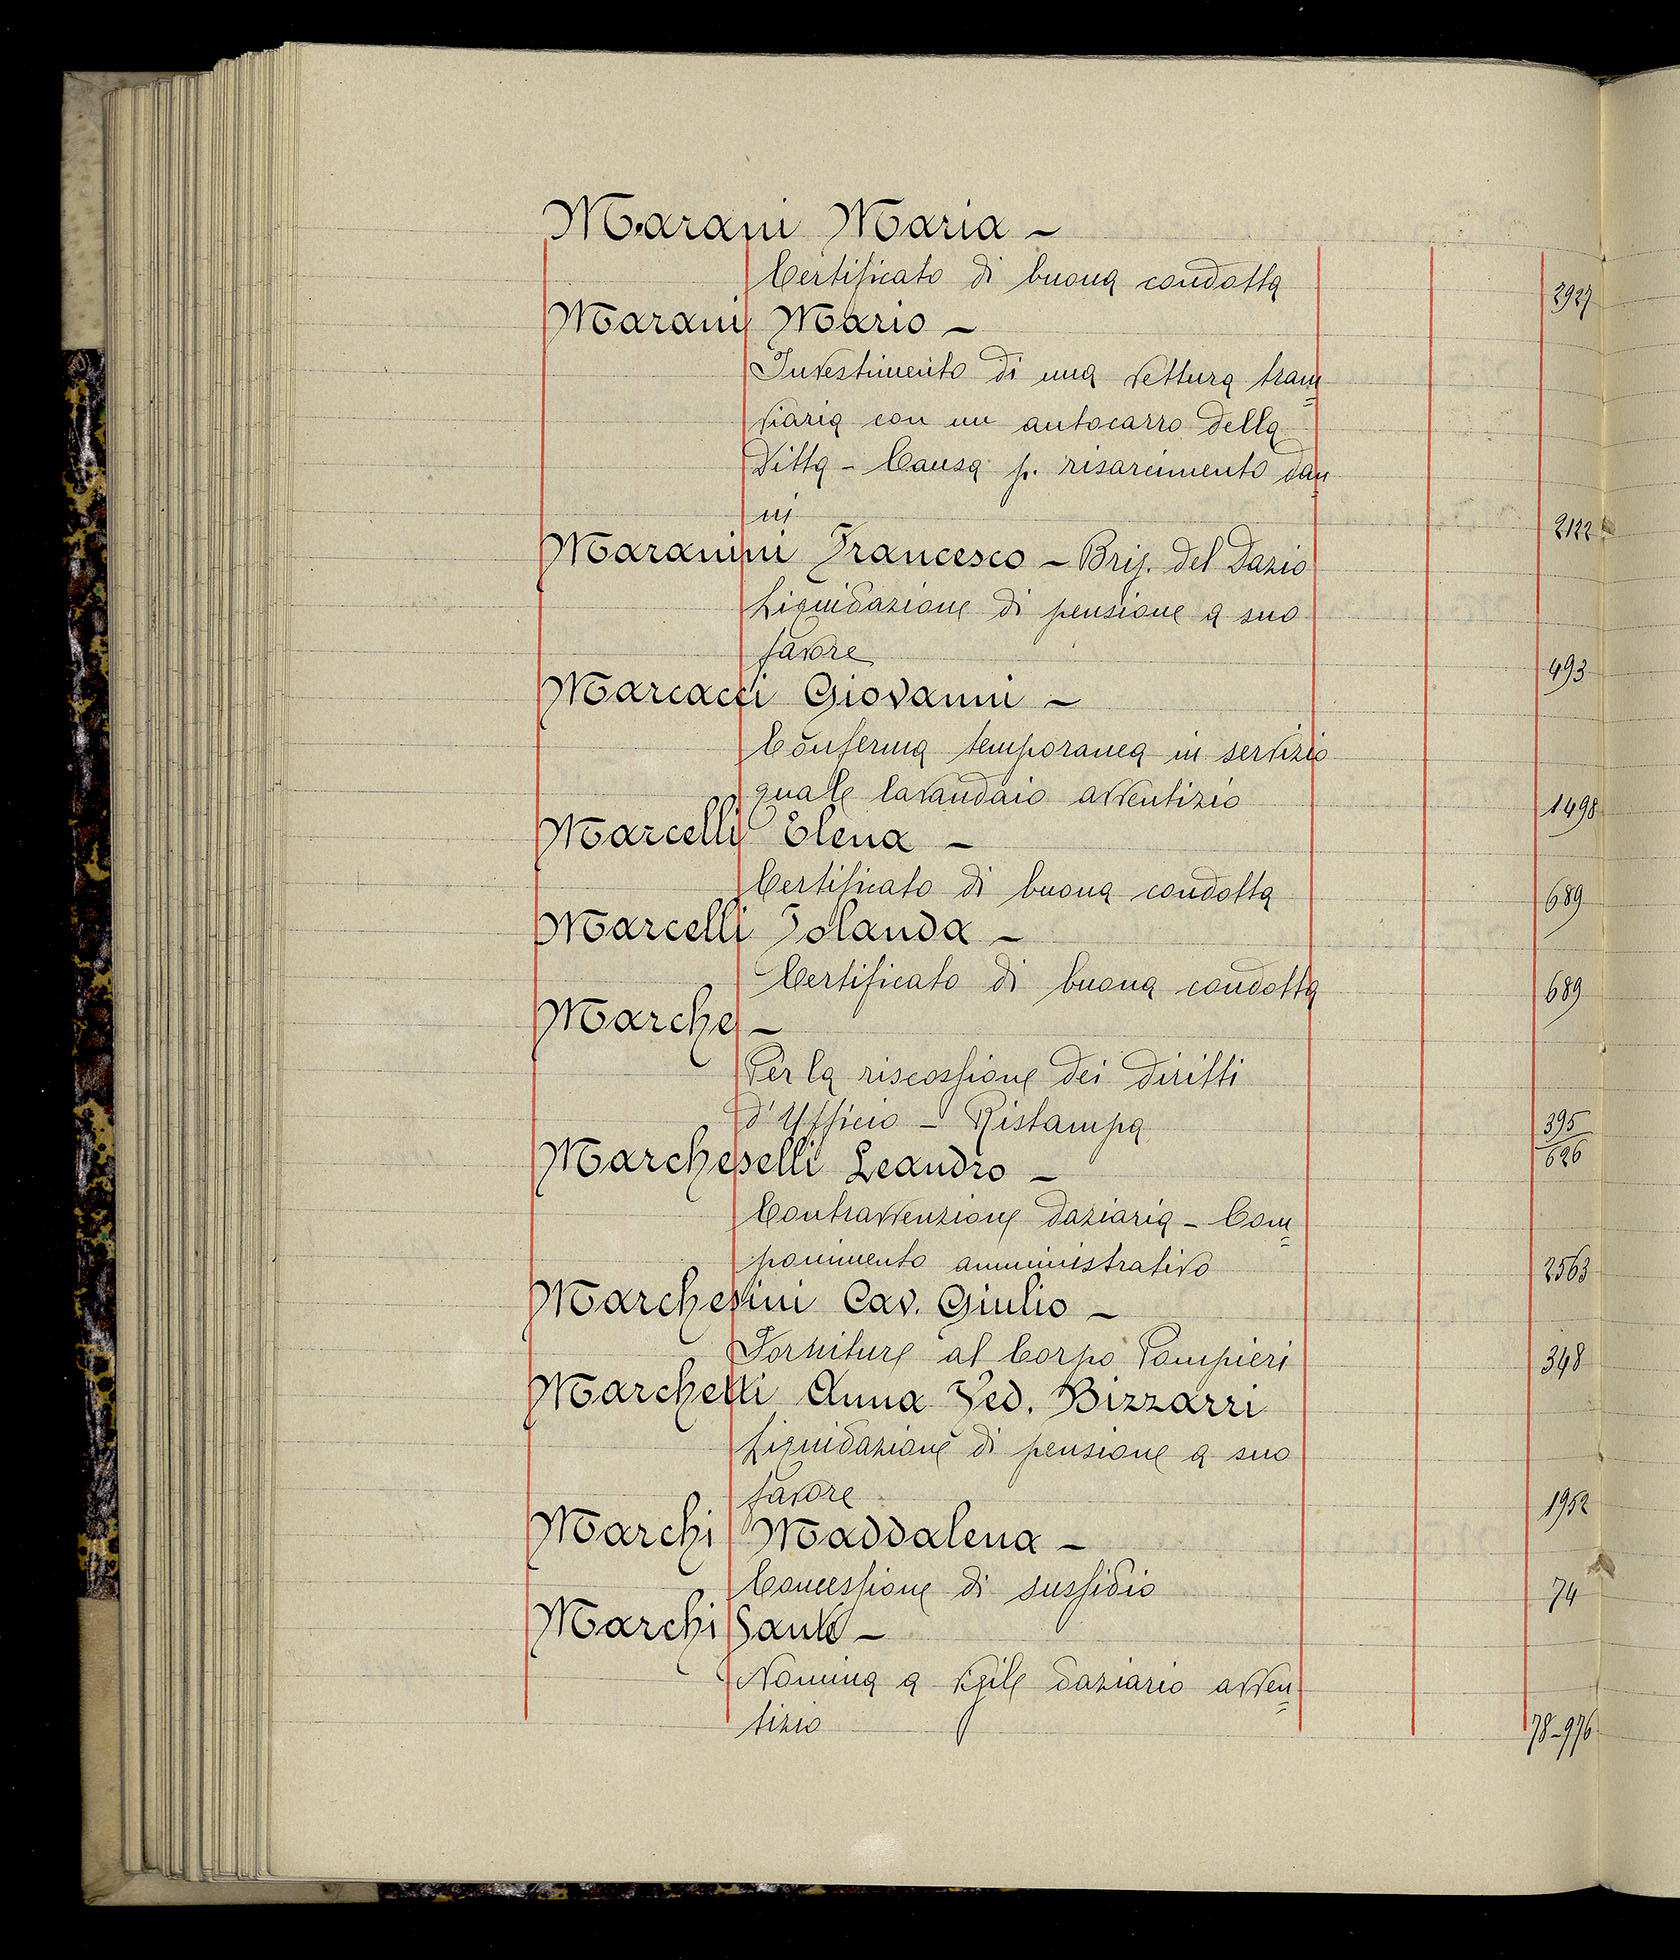 Marani Maria –
Certificato di buona condotta 2927
Marani Mario –
Investimento di una vettura tram=
viaria con un autocarro della
Ditta – Causa p. risarcimento dan=
ni 2122
Maranini Francesco – Brig. del Dazio
Liquidazione di pensione a suo
favore 493
Marcacci Giovanni –
Conferma temporanea in servizio
quale lavandaio avventizio 1498
Marcelli Elena –
Certificato di buona condotta 689
Marcelli Iolanda –
Certificato di buona condotta 689
Marche –
Per la riscossione dei diritti
d'Ufficio – Ristampa 395
626
Marcheselli Leandro –
Contravvenzione daziaria – Com=
ponimento amministrativo 2563
Marchesini Cav. Giulio –
Forniture al Corpo Pompieri 348
Marchetti Anna Ved. Bizzarri
Liquidazione di pensione a suo
favore 1952
Marchi Maddalena –
Concessione di sussidio 74
Marchi Sante –
Nomina a vigile daziario avven=
tizio 78–976